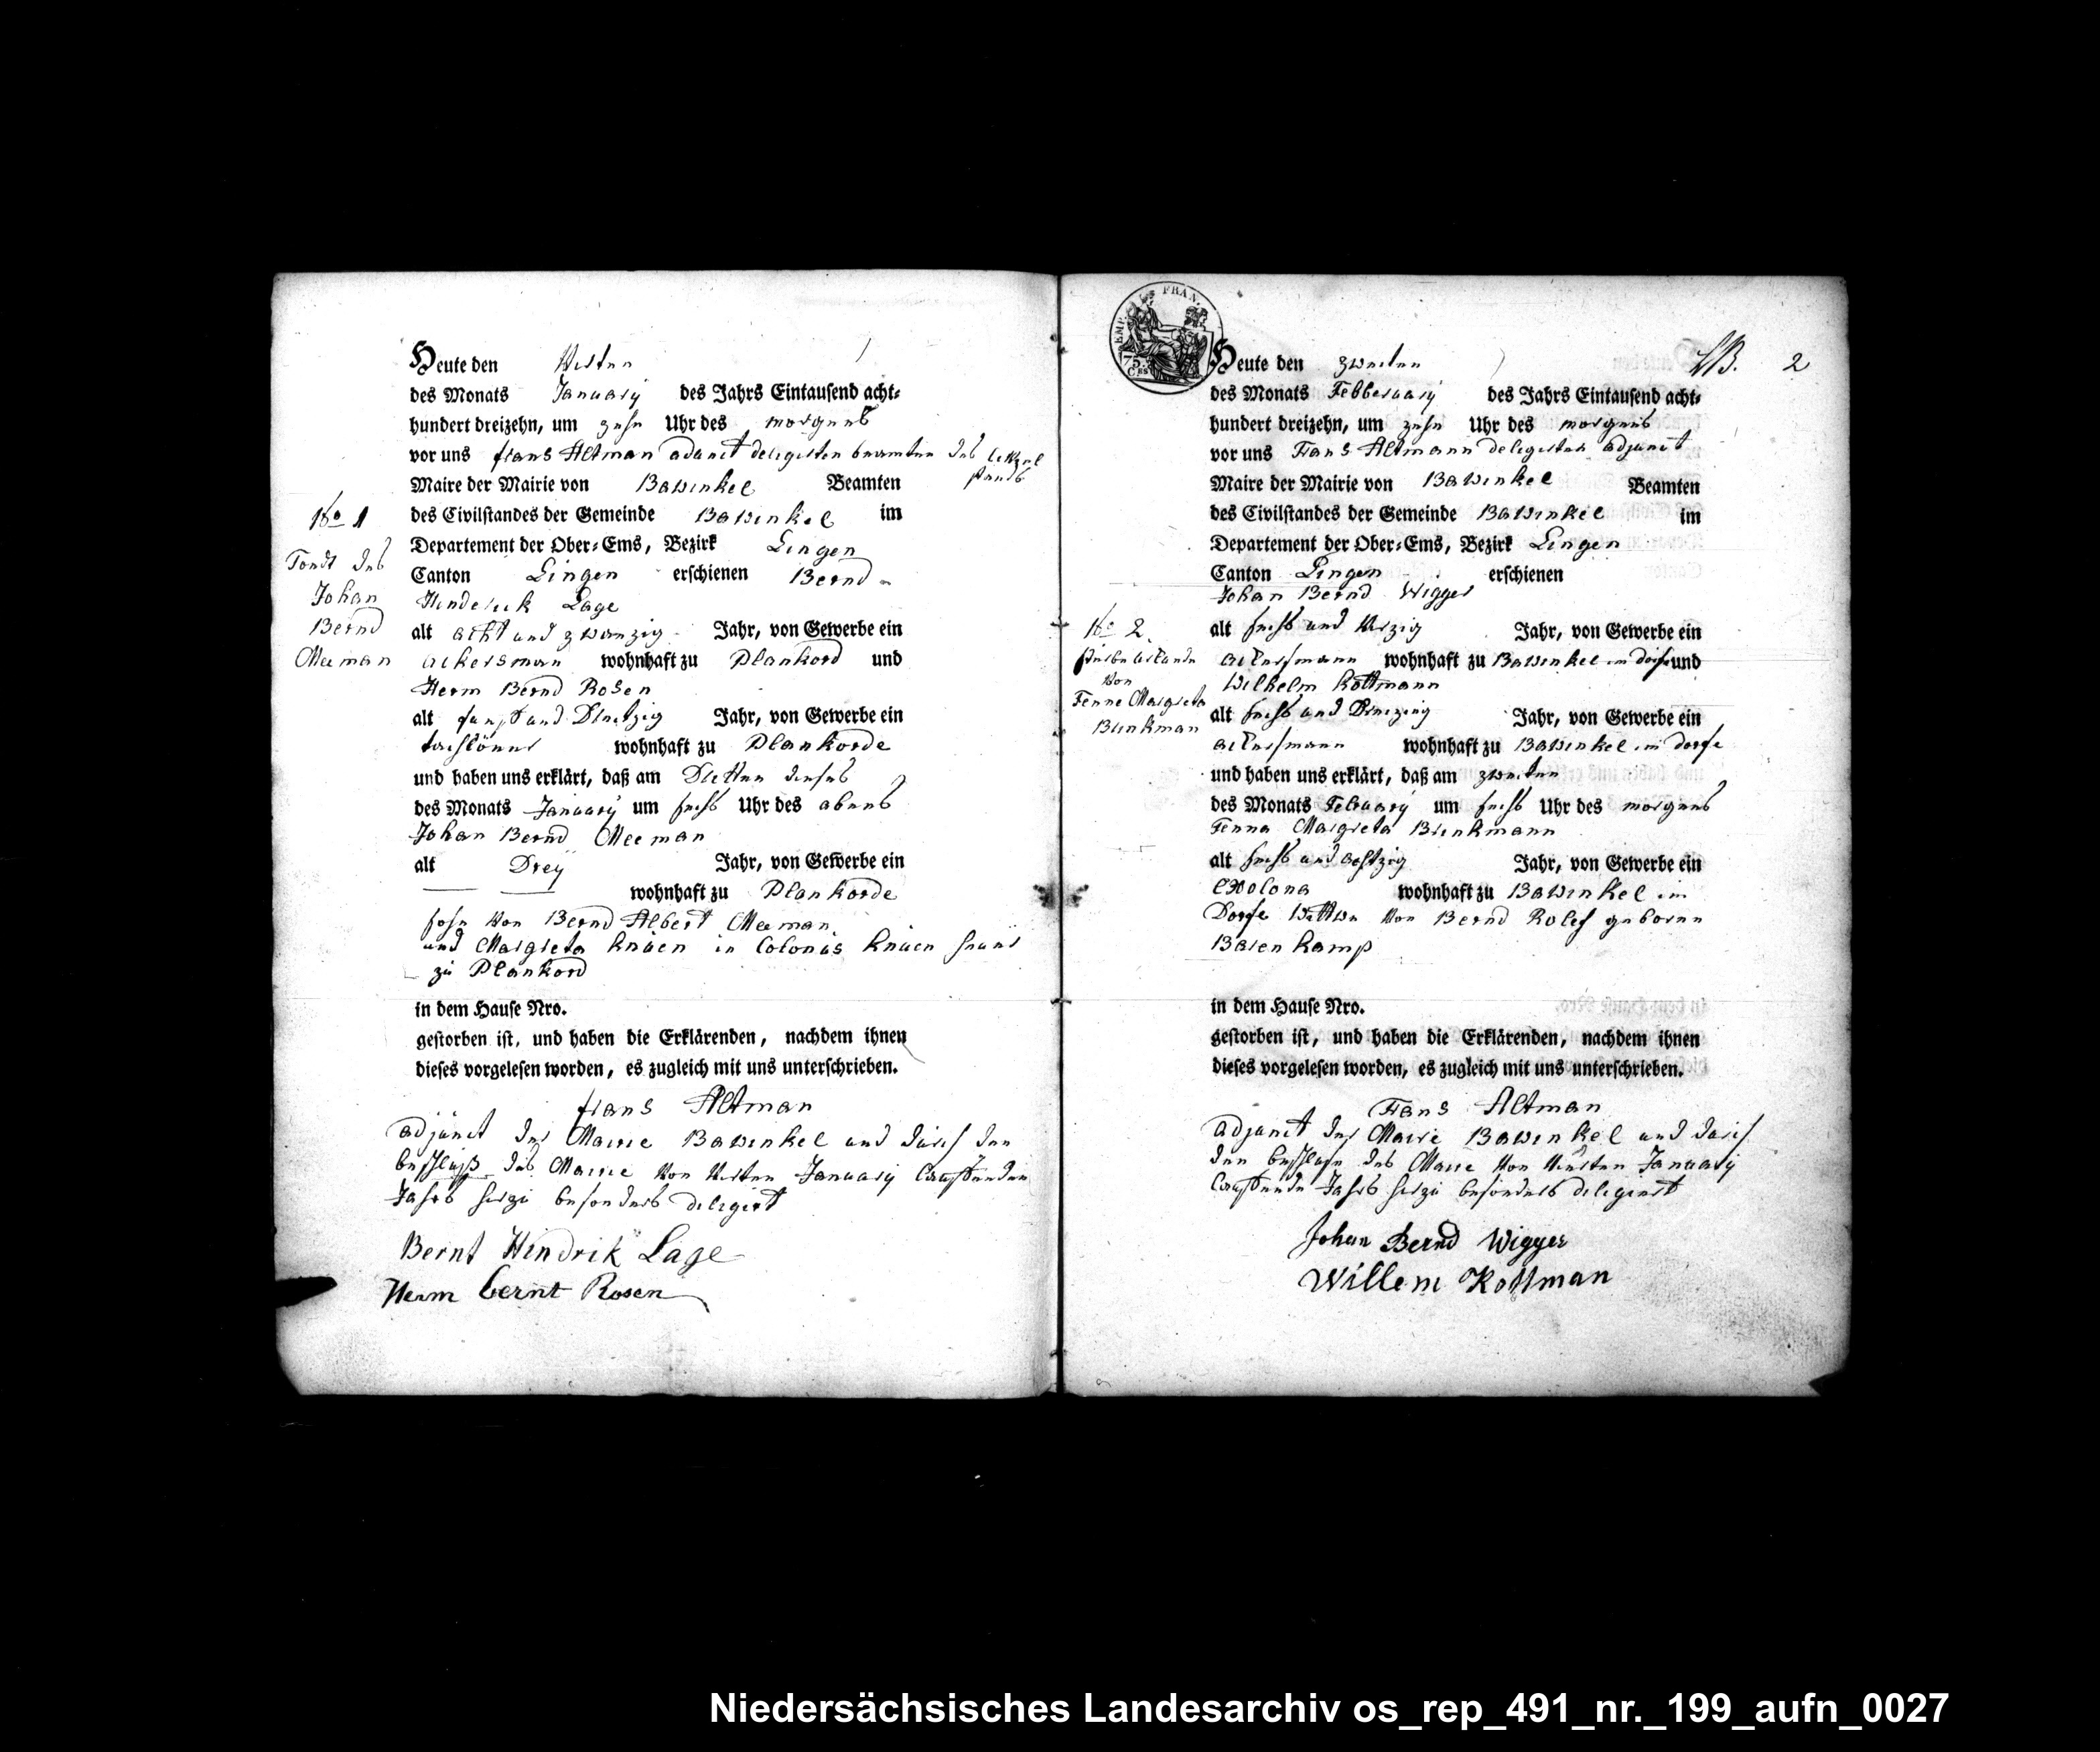 Heute den Virten
des Monats January des Jahrs Eintausend acht-
hundert dreizehn, um zehn Uhr des morgens
vor uns frans Altman adanct delegirten beamten des
Maire der Mairie von Bawinkel Beamten
des Civilstandes der Gemeinde Bawinkel im
Departement der Ober-Ems, Bezirk Lingen
Canton Lingen erschienen Bernd
Hinderick Lage
alt acht und zwanzig Jahr, von Gewerbe ein
ackersman wohnhaft zu Plankord und
Herm Bernd Rosen
alt funf und Dreitzig Jahr, von Gewerbe ein
wohnhaft zu Plankorde
und haben uns erklärt, daß am Dritten dieses
des Monats January um sechs Uhr des abens
Johan Bernd Meeman
alt Drey Jahr, von Gewerbe ein
wohnhaft zu Plankorde
sohn von Bernd Albert Meeman
und Margreta Knüen in Colonus Knüen
zu Plankord
in dem Hause Nro.
gestorben ist, und haben die Erklärenden, nachdem ihnen
dieses vorgelesen worden, es zugleich mit uns unterschrieben.
frans Altman
adjunct der Mairie Bawinkel und durch den
beschluß des Maire von Virten January Lauffenden
Jahrs hirzu besonders delegirt
Bernt Hindrik Lage
Herm bernt Rosen
No 1
Todt des
Johan
Bernd
Meeman
EMP. FRAN.
75.
Ces
2
Heute den zweiten
des Monats Febberuary des Jahrs Eintausend acht-
hundert dreizehn, um zehn Uhr des morgens
vor uns Frans Altmann delegirten adjunct
Maire der Mairie von Bawinkel Beamten
des Civilstandes der Gemeinde Bawinkel im
Departement der Ober-Ems, Bezirk Lingen
Canton Lingen erschienen
Johan Bernd Wigger
alt sechs und Virzig Jahr, von Gewerbe ein
ackersmann wohnhaft zu Bawinkel im dorfe und
Wilhelm Kottmann
alt sechs und Dreizig Jahr, von Gewerbe ein
ackersmann wohnhaft zu Bawinkel im dorfe
und haben uns erklärt, daß am zweiten
des Monats February um sechs Uhr des morgens
Fenna Margreta Brinkmann
alt sechs und achtzig Jahr, von Gewerbe ein
Colona wohnhaft zu Bawinkel im
Dorfe Wittwe von Bernd Rolef geboren
Barenkamp
in dem Hause Nro.
gestorben ist, und haben die Erklärenden, nachdem ihnen
dieses vorgelesen worden, es zugleich mit uns unterschrieben.
Frans Altman
adjunct der Mairie Bawinkel und durch
den beschluß des Maire von Virten January
Lauffende Jahrs hirzu besonders delegirt
Johan Bernd Wigger
Willem Kottman
No 2
Sterbe urkunde
von
Fenne Margreta
Brinkman
Niedersächsisches Landesarchiv os_rep_491_nr._199_aufn_0027